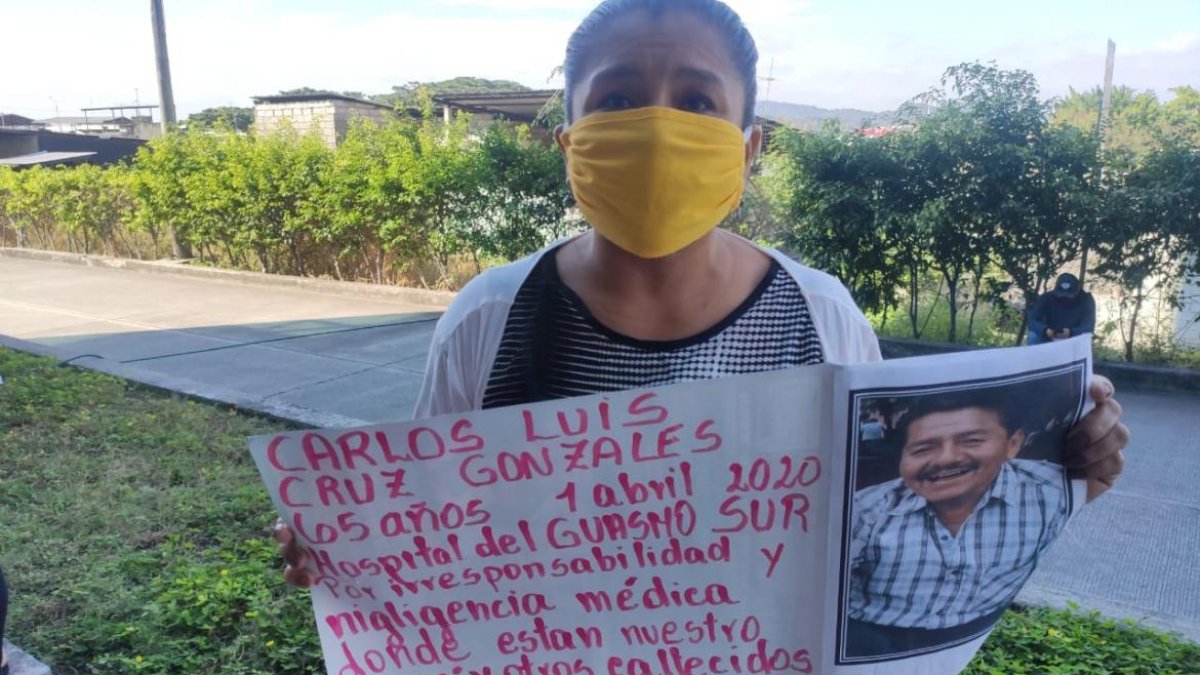 CARLOS LUIS
CRUZ GONZALES
65 años 1 abril 2020
Hospital del GUASMO SUR
Por irresponsabilidad y
nigligencia médica
donde estan nuestro
otros fallecidos